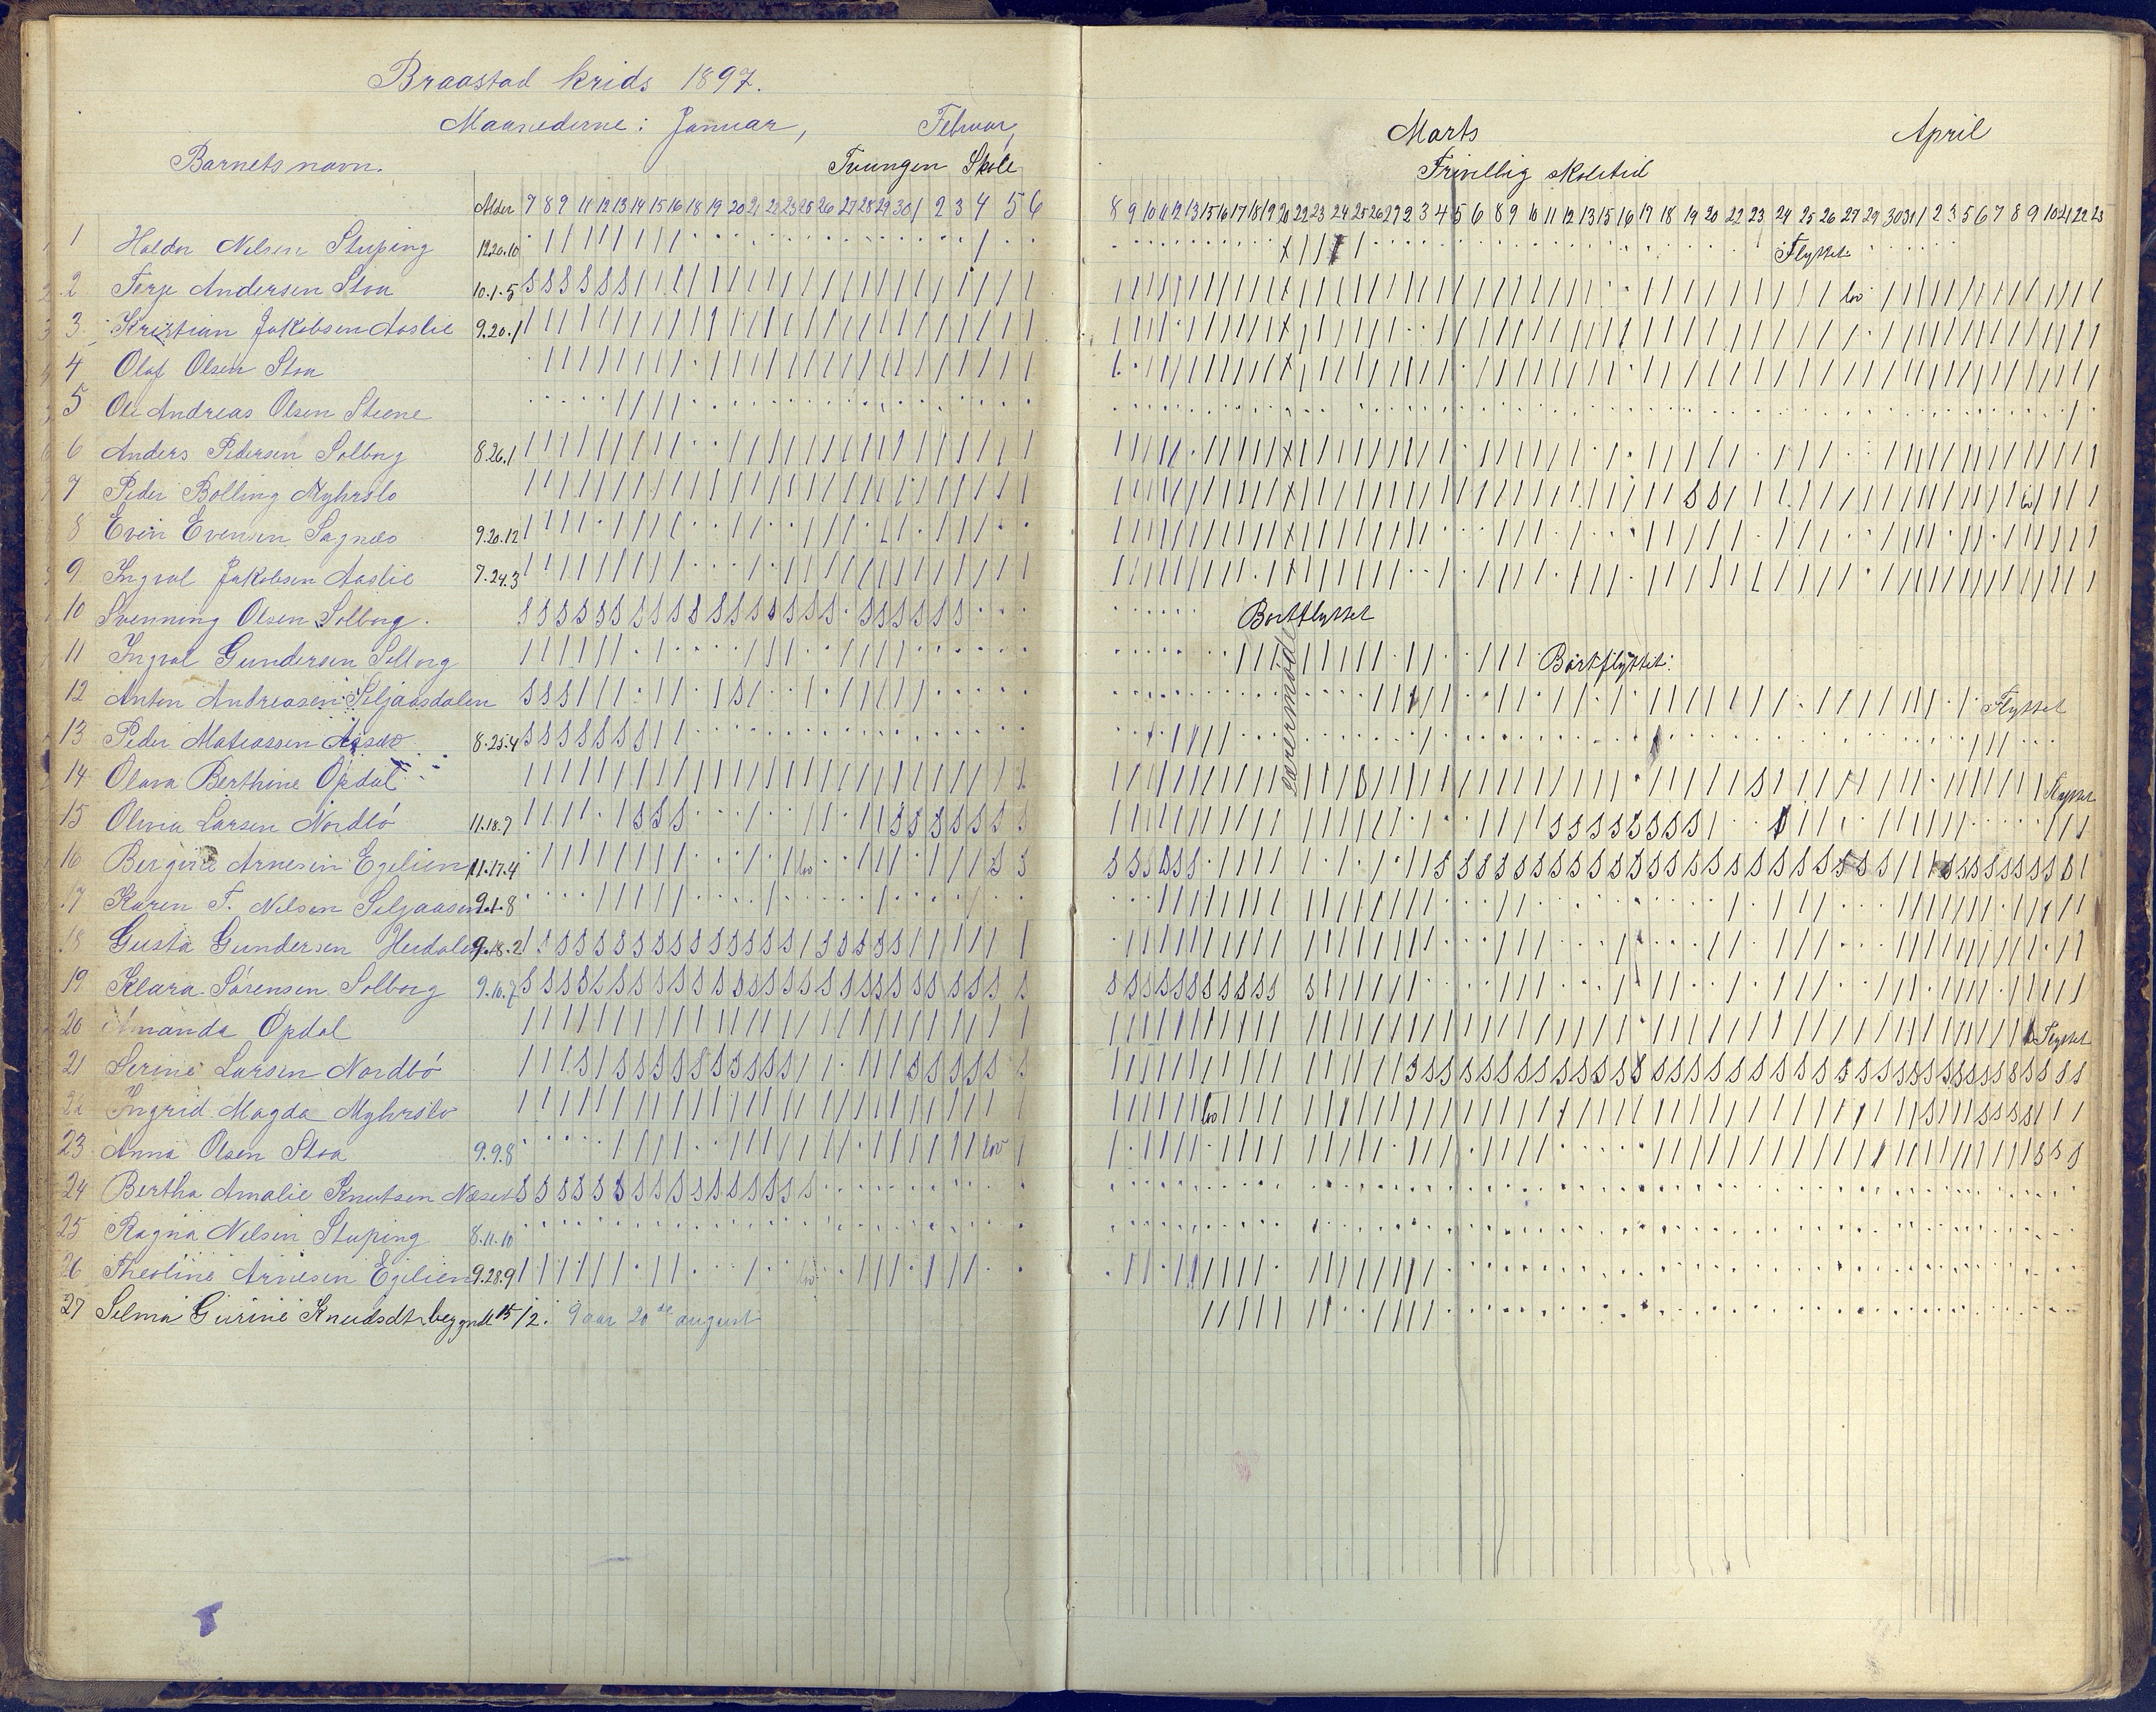 Braastad krids 1897.
Maanederne: Januar, Februar,
Barnets navn. Tvungen Skole
Alder 7 8 9 11 12 13 14 15 16 18 19 20 21 22 23 25 26 27 28 29 30 1 2 3 4 5 6
1 Haldor Nilsen Stuping 12.20.10
2 Terje Andersen Stoa 10.1.5
3 Kristian Jakobsen Aaslie 9.20.1
4 Olaf Olsen Stoa
5 Ole Andreas Olsen Steene
6 Anders Pedersen Solborg 8.26.1
7 Peder Bolling Myhrslo
8 Even Evensen Sagnæs 9.20.12
9 Ingval Jakobsen Aaslie 7.24.3
10 Svenning Olsen Solborg.
11 Ingval Gundersen Solborg
12 Anton Andreasen Seljaasdalen
13 Peder Matiassen 8.25.4
14 Olava Berthine Opdal
15 Olivia Larsen Nordbö 11.18.7
16 Bergine Arnesen Egelien 11.17.4
17 Karen F. Nilsen Seljaasen 9.1.8
18 Gusta Gundersen Heidalen 9.18.2
19 Klara Sörensen Solborg 9.10.7
20 Amanda Opdal
21 Serine Larsen Nordbö
22 Ingrid Magda Myhrslo
23 Anna Olsen Stoa 9.9.8 lov
24 Bertha Amalie Knutsen Næset
25 Ragna Nilsen Stuping 8.11.10
26 Theoline Arnesen Egelien 9.28.9
27 Selma Gurine Knudsdtr. begyndte 15/2. 9 aar 20de august
Marts April
Frivillig skoletid
8 9 10 11 12 13 15 16 17 18 19 20 22 23 24 25 26 27 2 3 4 5 6 8 9 10 11 12 13 15 16 17 18 19 20 22 23 24 25 26 27 29 30 31 1 2 3 5 6 7 8 9 10 21 22 23
Flyttet
lov
Bortflyttet
Bortflyttet.
Flyttet
Flyttet
Flyttet
lov